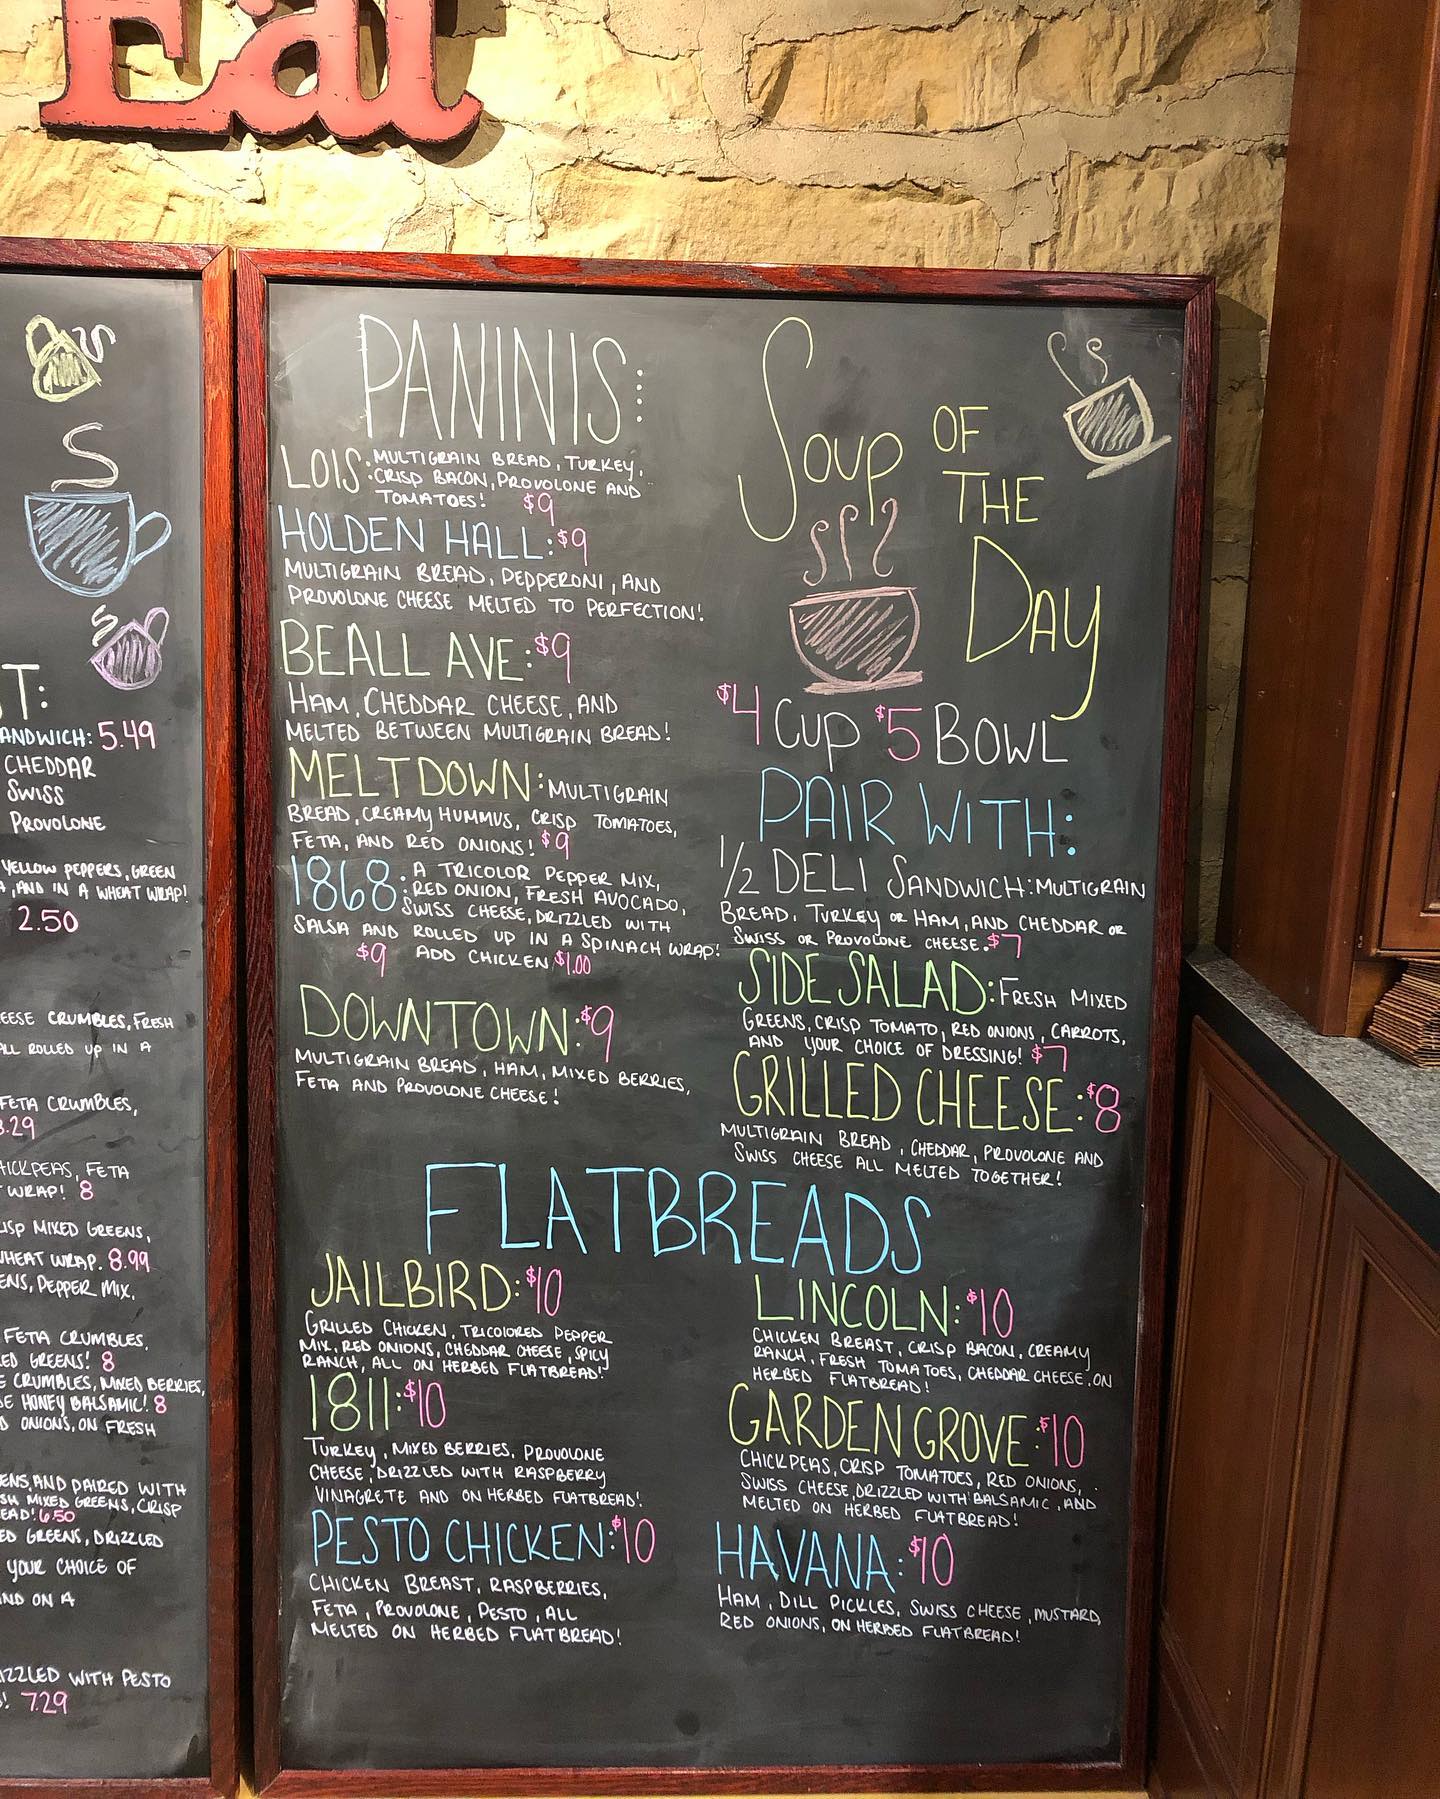 Eat
T:
ANDWICH: 5.49
CHEDDAR
SWISS
PROVOLONE
YELLOW PEPPERS, GREEN
, AND IN A WHEAT WRAP!
2.50
EESE CRUMBLES, FRESH
ALL ROLLED UP IN A
FETA CRUMBLES,
.29
HICKPEAS, FETA
WRAP! 8
ISP MIXED GREENS,
WHEAT WRAP. 8.99
ENS, PEPPER MIX.
FETA CRUMBLES.
ED GREENS! 8
E CRUMBLES, MIXED BERRIES,
SE HONEY BALSAMIC! 8
D ONIONS, ON FRESH
ENS, AND PAIRED WITH
SH MIXED GREENS, CRISP
EAD! 6.50
ED GREENS, DRIZZLED
YOUR CHOICE OF
AND ON A
IZZLED WITH PESTO
! 7.29
PANINIS:
LOIS: MULTIGRAIN BREAD, TURKEY,
CRISP BACON, PROVOLONE AND
TOMATOES! $9
HOLDEN HALL: $9
MULTIGRAIN BREAD, PEPPERONI, AND
PROVOLONE CHEESE MELTED TO PERFECTION!
BEALL AVE: $9
HAM, CHEDDAR CHEESE, AND
MELTED BETWEEN MULTIGRAIN BREAD!
MELTDOWN: MULTIGRAIN
BREAD, CREAMY HUMMUS, CRISP TOMATOES,
FETA, AND RED ONIONS! $9
1868: A TRICOLOR PEPPER MIX,
RED ONION, FRESH AVOCADO,
SWISS CHEESE, DRIZZLED WITH
SALSA AND ROLLED UP IN A SPINACH WRAP!
$9 ADD CHICKEN $1.00
DOWNTOWN: $9
MULTIGRAIN BREAD, HAM, MIXED BERRIES,
FETA AND PROVOLONE CHEESE!
SOUP OF
THE
DAY
$4 CUP $5 BOWL
PAIR WITH:
1/2 DELI SANDWICH: MULTIGRAIN
BREAD, TURKEY OR HAM, AND CHEDDAR OR
SWISS OR PROVOLONE CHEESE. $7
SIDE SALAD: FRESH MIXED
GREENS, CRISP TOMATO, RED ONIONS, CARROTS,
AND YOUR CHOICE OF DRESSING! $7
GRILLED CHEESE: $8
MULTIGRAIN BREAD, CHEDDAR, PROVOLONE AND
SWISS CHEESE ALL MELTED TOGETHER!
FLATBREADS
JAILBIRD: $10
GRILLED CHICKEN, TRICOLORED PEPPER
MIX, RED ONIONS, CHEDDAR CHEESE, SPICY
RANCH, ALL ON HERBED FLATBREAD!
1811: $10
TURKEY, MIXED BERRIES, PROVOLONE
CHEESE, DRIZZLED WITH RASPBERRY
VINAGRETE AND ON HERBED FLATBREAD!
PESTO CHICKEN: $10
CHICKEN BREAST, RASPBERRIES,
FETA, PROVOLONE, PESTO, ALL
MELTED ON HERBED FLATBREAD!
LINCOLN: $10
CHICKEN BREAST, CRISP BACON, CREAMY
RANCH, FRESH TOMATOES, CHEDDAR CHEESE, ON
HERBED FLATBREAD!
GARDEN GROVE: $10
CHICKPEAS, CRISP TOMATOES, RED ONIONS,
SWISS CHEESE, DRIZZLED WITH BALSAMIC, AND
MELTED ON HERBED FLATBREAD!
HAVANA: $10
HAM, DILL PICKLES, SWISS CHEESE, MUSTARD,
RED ONIONS, ON HERBED FLATBREAD!